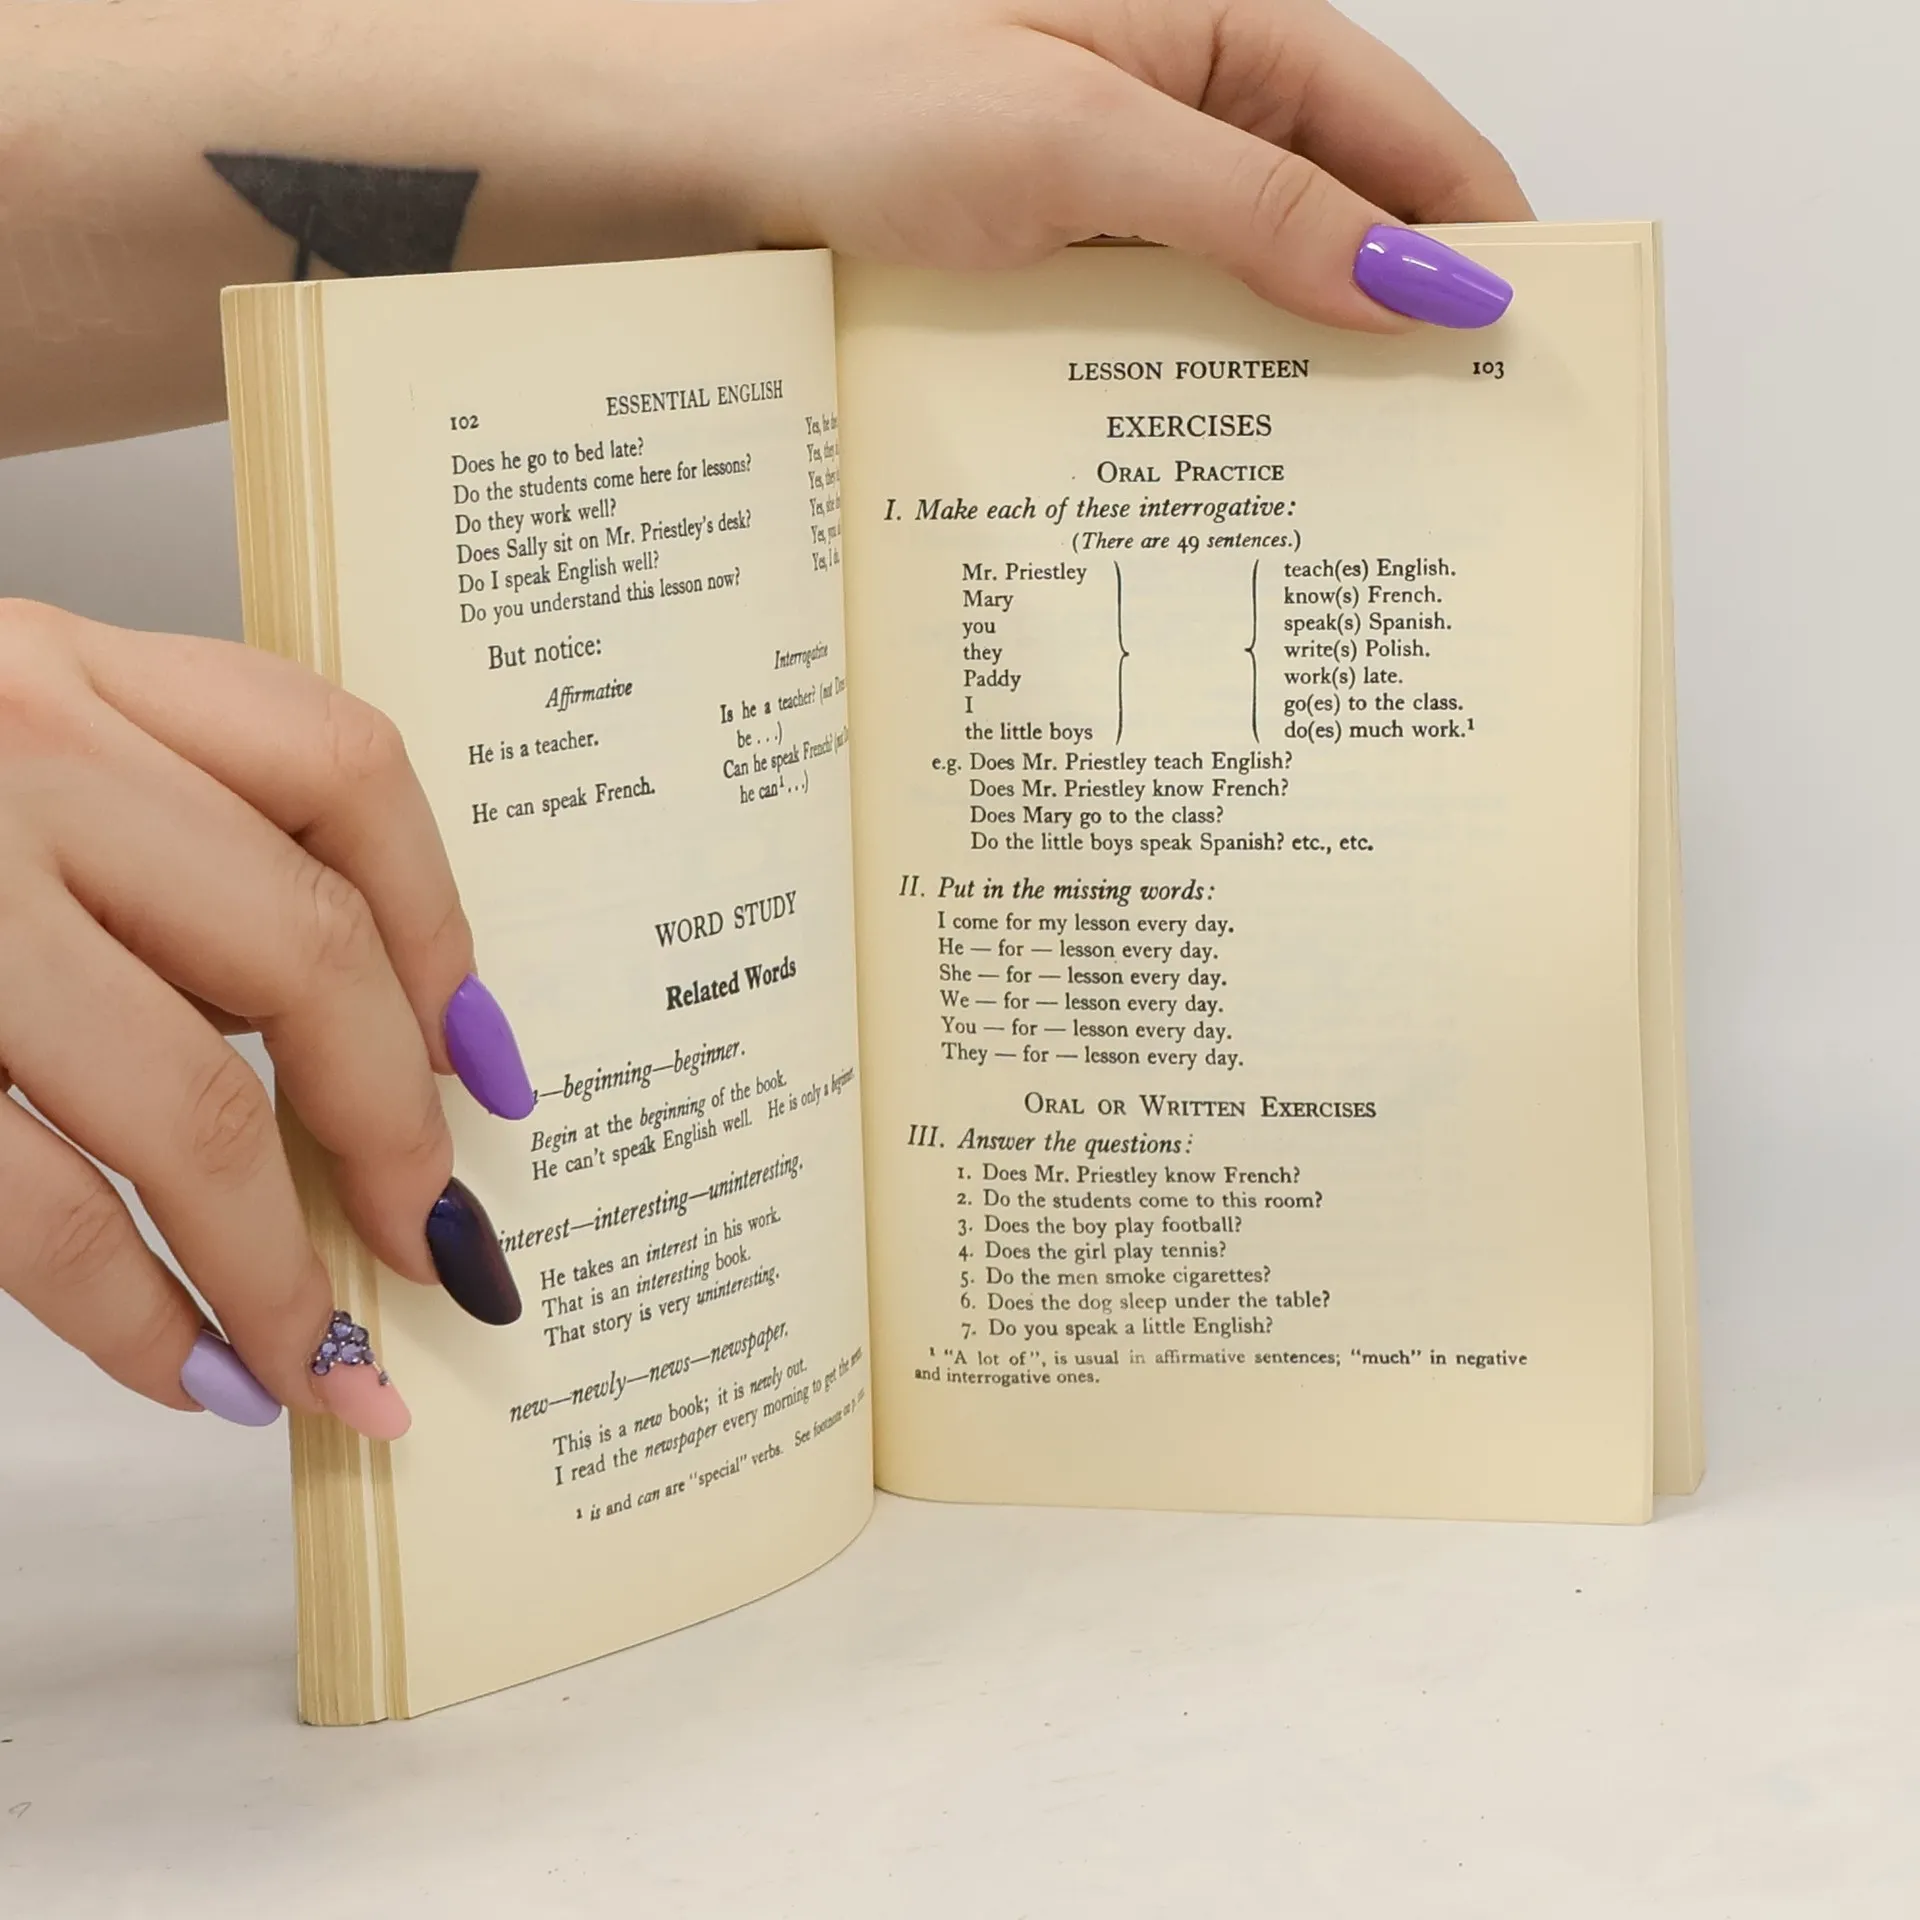 102
ESSENTIAL ENGLISH
Does he go to bed late? Yes, he
Do the students come here for lessons? Yes, they
Do they work well? Yes, they
Does Sally sit on Mr. Priestley's desk? Yes, she
Do I speak English well? Yes, you
Do you understand this lesson now? Yes, I
But notice:
Affirmative Interrogative
He is a teacher. Is he a teacher? (not
be . . .)
He can speak French. Can he speak French? (not
he can¹ . . .)
WORD STUDY
Related Words
—beginning—beginner.
Begin at the beginning of the book.
He can't speak English well. He is only a beginner
interest—interesting—uninteresting.
He takes an interest in his work.
That is an interesting book.
That story is very uninteresting.
new—newly—news—newspaper.
This is a new book; it is newly out.
I read the newspaper every morning to get the news.
¹ is and can are "special" verbs. See footnote on p.
LESSON FOURTEEN 103
EXERCISES
ORAL PRACTICE
I. Make each of these interrogative:
(There are 49 sentences.)
Mr. Priestley teach(es) English.
Mary know(s) French.
you speak(s) Spanish.
they write(s) Polish.
Paddy work(s) late.
I go(es) to the class.
the little boys do(es) much work.¹
e.g. Does Mr. Priestley teach English?
Does Mr. Priestley know French?
Does Mary go to the class?
Do the little boys speak Spanish? etc., etc.
II. Put in the missing words:
I come for my lesson every day.
He — for — lesson every day.
She — for — lesson every day.
We — for — lesson every day.
You — for — lesson every day.
They — for — lesson every day.
ORAL OR WRITTEN EXERCISES
III. Answer the questions:
1. Does Mr. Priestley know French?
2. Do the students come to this room?
3. Does the boy play football?
4. Does the girl play tennis?
5. Do the men smoke cigarettes?
6. Does the dog sleep under the table?
7. Do you speak a little English?
¹ "A lot of", is usual in affirmative sentences; "much" in negative
and interrogative ones.